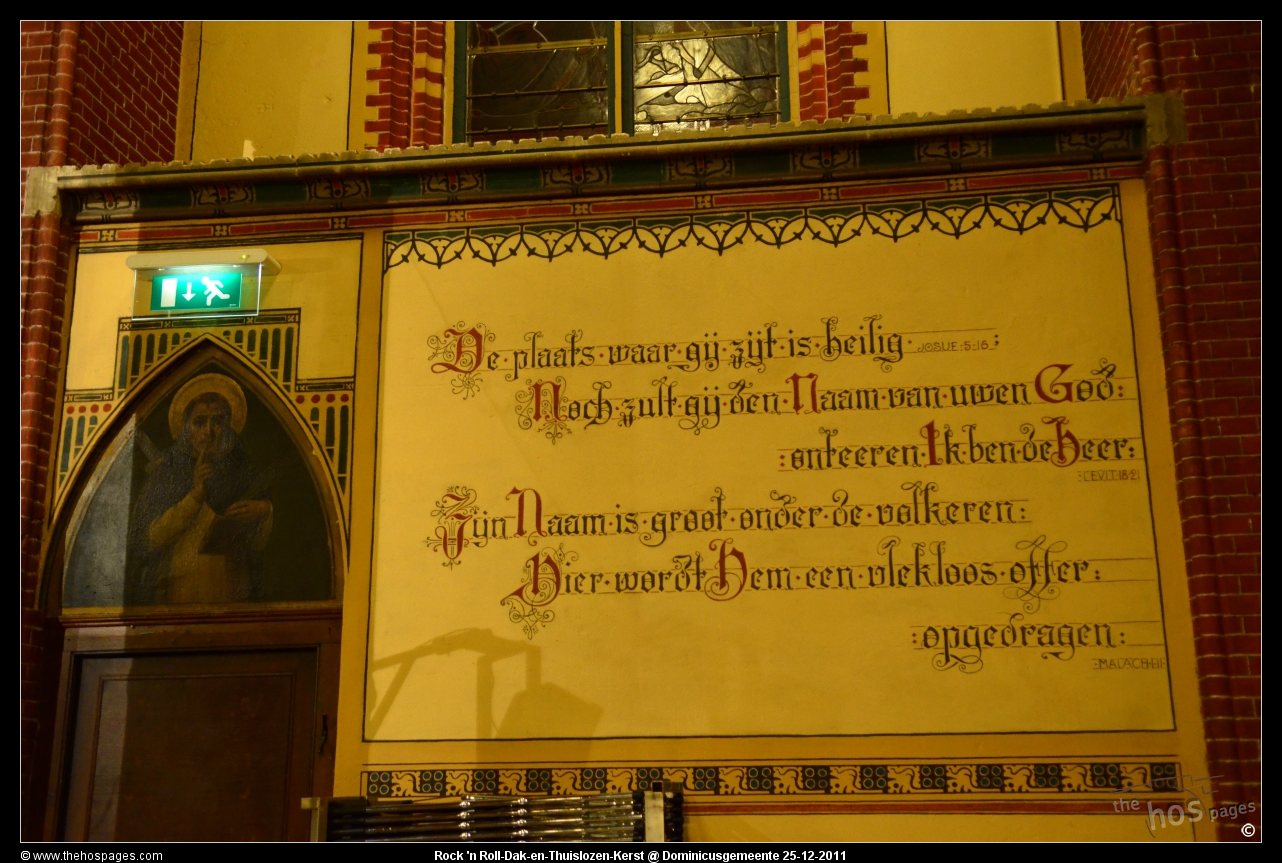 De·plaats·waar·gij·zijt·is·heilig· JOSUE:5:16:
Noch·zult·gij·den·Naam·van·uwen·God:
:onteeren·Ik·ben·de Heer:
:LEVIT:18:21
Zijn Naam·is·groot·onder·de·volkeren:
Hier·wordt Hem·een·vlekloos·offer:
:opgedragen:
:MALACH:1:11
the hos pages
©
© www.thehospages.com
Rock 'n Roll-Dak-en-Thuislozen-Kerst @ Dominicusgemeente 25-12-2011